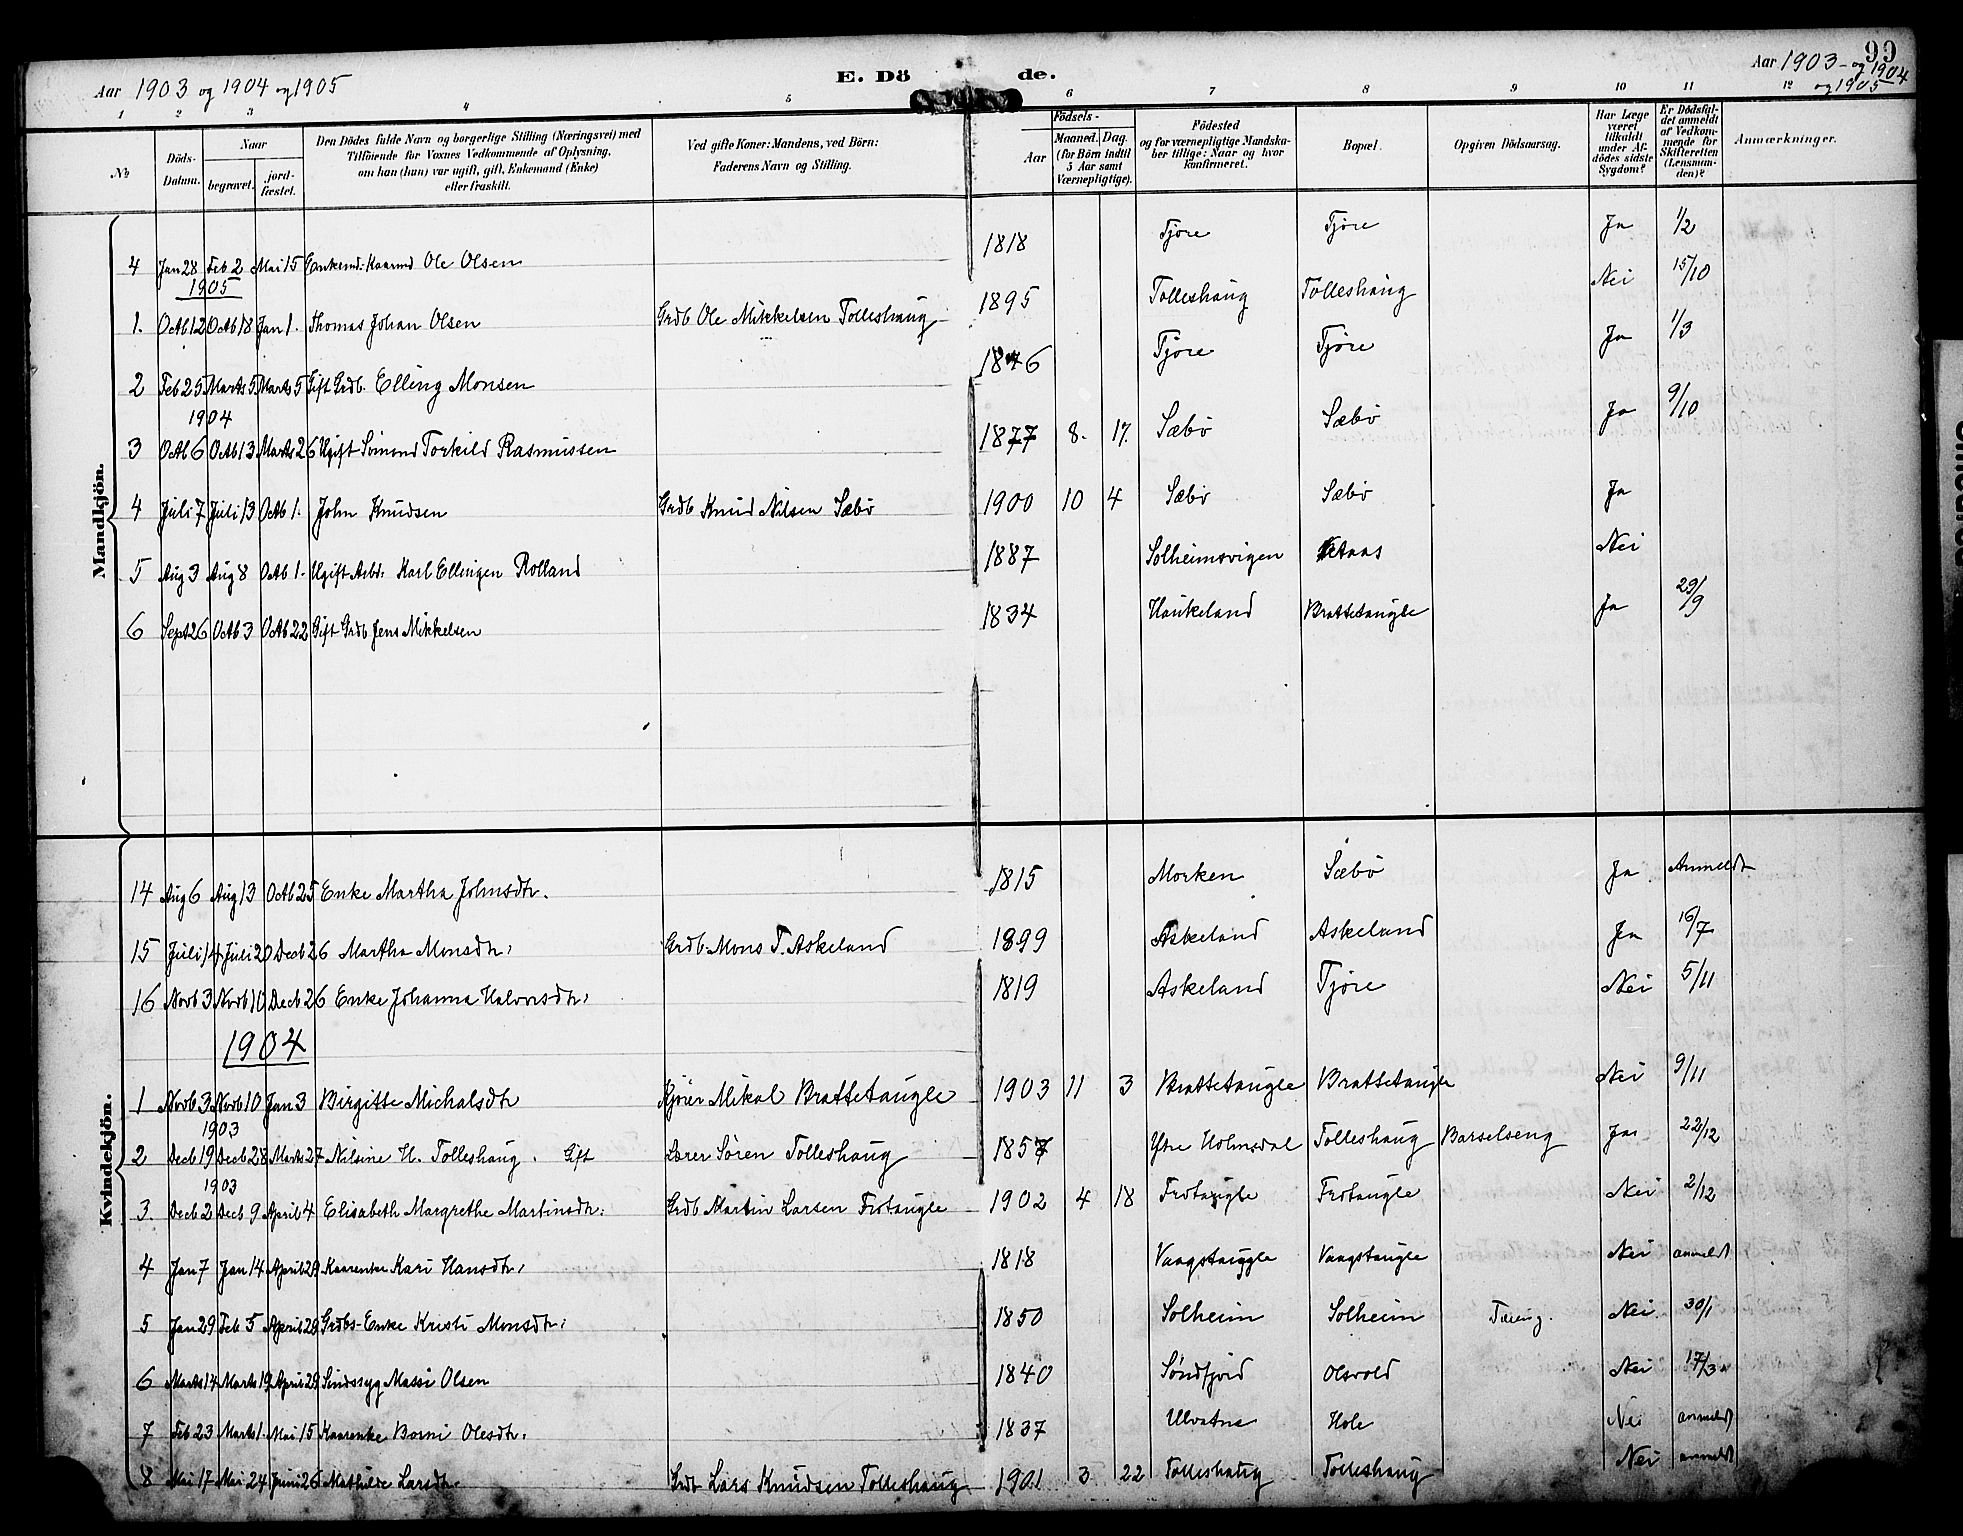 Aar 1903 og 1904 og 1905 E. Dö de. Aar 1903 - og 1904 og 1905 99
1 2 3 4 5 6 7 8 9 10 11 12
No Döds-Datum. Naar begravet. jordfæstet. Den Dödes fulde Navn og borgerlige Stilling (Næringsvei) med Tilföiende for Voxnes Vedkommende af Oplysning, om han (hun) var ugift, gift, Enkemand (Enke) eller fraskilt. Ved gifte Koner: Mandens, ved Börn: Faderens Navn og Stilling. Födsels- Aar Maaned. Dag. (for Börn indtil 5 Aar samt Værnepligtige). Födested og for værnepligtige Mandskaber tillige: Naar og hvor konfirmeret. Bopæl. Opgiven Dödsaarsag. Har Læge været tilkaldt under Afdödes sidste Sygdom? Er Dödsfaldet anmeldt af Vedkommende for Skifteretten (Lensmanden)? Anmærkninger.
Mandkjön.
4 Jan 28 Feb 2 Mai 15 Enkemd. Kaarmd Ole Olsen 1818 Tjøre Tjøre Ja 1/2
1905
1. Octb 12 Octb 18 Jan 1. Thomas Johan Olsen Grdb Ole Mikkelsen Tolleshaug 1895 Tolleshaug Tolleshaug Nei 15/10
2 Feb 25 Marts 5 Marts 5 Gift Grdb. Elling Monsen 1846 Tjøre Tjøre Ja 1/3
1904
3 Octb 6 Octb 13 Marts 26 Ugift Sømand Torkild Rasmussen 1877 8. 17. Sæbø Sæbø Ja 9/10
4 Juli 7 Juli 13 Octb 1. John Knudsen Grdb Knud Nilsen Sæbø 1900 10 4 Sæbø Sæbø Ja
5 Aug 3 Aug 8 Octb 1. Ugift Arbd. Karl Ellingen Rolland 1887 Solheimsvigen Nei
6 Sept 26 Octb 3 Octb 22 Gift Grdb Jens Mikkelsen 1834 Haukeland Brattetaugle Ja 29/9
Kvindekjön.
14 Aug 6 Aug 13 Octb 25 Enke Martha Johnsdtr. 1815 Morken Sæbø Ja Anmeldt
15 Juli 14 Juli 20 Decb 26 Martha Monsdtr. Grdb. Mons T. Askeland 1899 Askeland Askeland Ja 16/7
16 Novb 3 Novb 10 Decb 26 Enke Johanna Halvorsdtr. 1819 Askeland Tjøre Nei 5/11
1904
1 Novb 3 Novb 10 Jan 3 Birgitte Michalsdtr Mikal Brattetaugle 1903 11 3 Brattetaugle Brattetaugle Nei 9/11
1903
2 Decb 19 Decb 28 Marts 27 Nilsine H. Tolleshaug. Gift Lærer Søren Tolleshaug 1857 Ytre Holmsdal Tolleshaug Barselseng Ja 22/12
1903
3. Decb 2 Decb 9 April 4 Elisabeth Margrethe Martinsdtr. Grdb Martin Larsen Frotaugle 1902 4 18 Frotaugle Frotaugle Nei 2/12
4 Jan 7 Jan 14 April 29 Kaarenke Kari Hansdtr. 1818 Vaagstaugle Vaagstaugle Nei anmeldt
5 Jan 29 Feb 5 April 29 Grdbs-Enke Kristi Monsdtr. 1850 Solheim Solheim Tæring. Nei 30/1
6 Marts 14 Marts 19 April 29 Sindssyg Massi Olsen 1840 Søndfjord Olsvold Nei 17/3
7 Feb 23 Marts 1. Mai 15 Kaarenke Borni Olesdtr. 1837 Ulvatne Hole Nei anmeldt
8 Mai 17 Mai 24 Juni 26 Mathilde Larsdtr. Grdb Lars Knudsen Tolleshaug 1901 3 22 Tolleshaug Tolleshaug Nei anmeldt